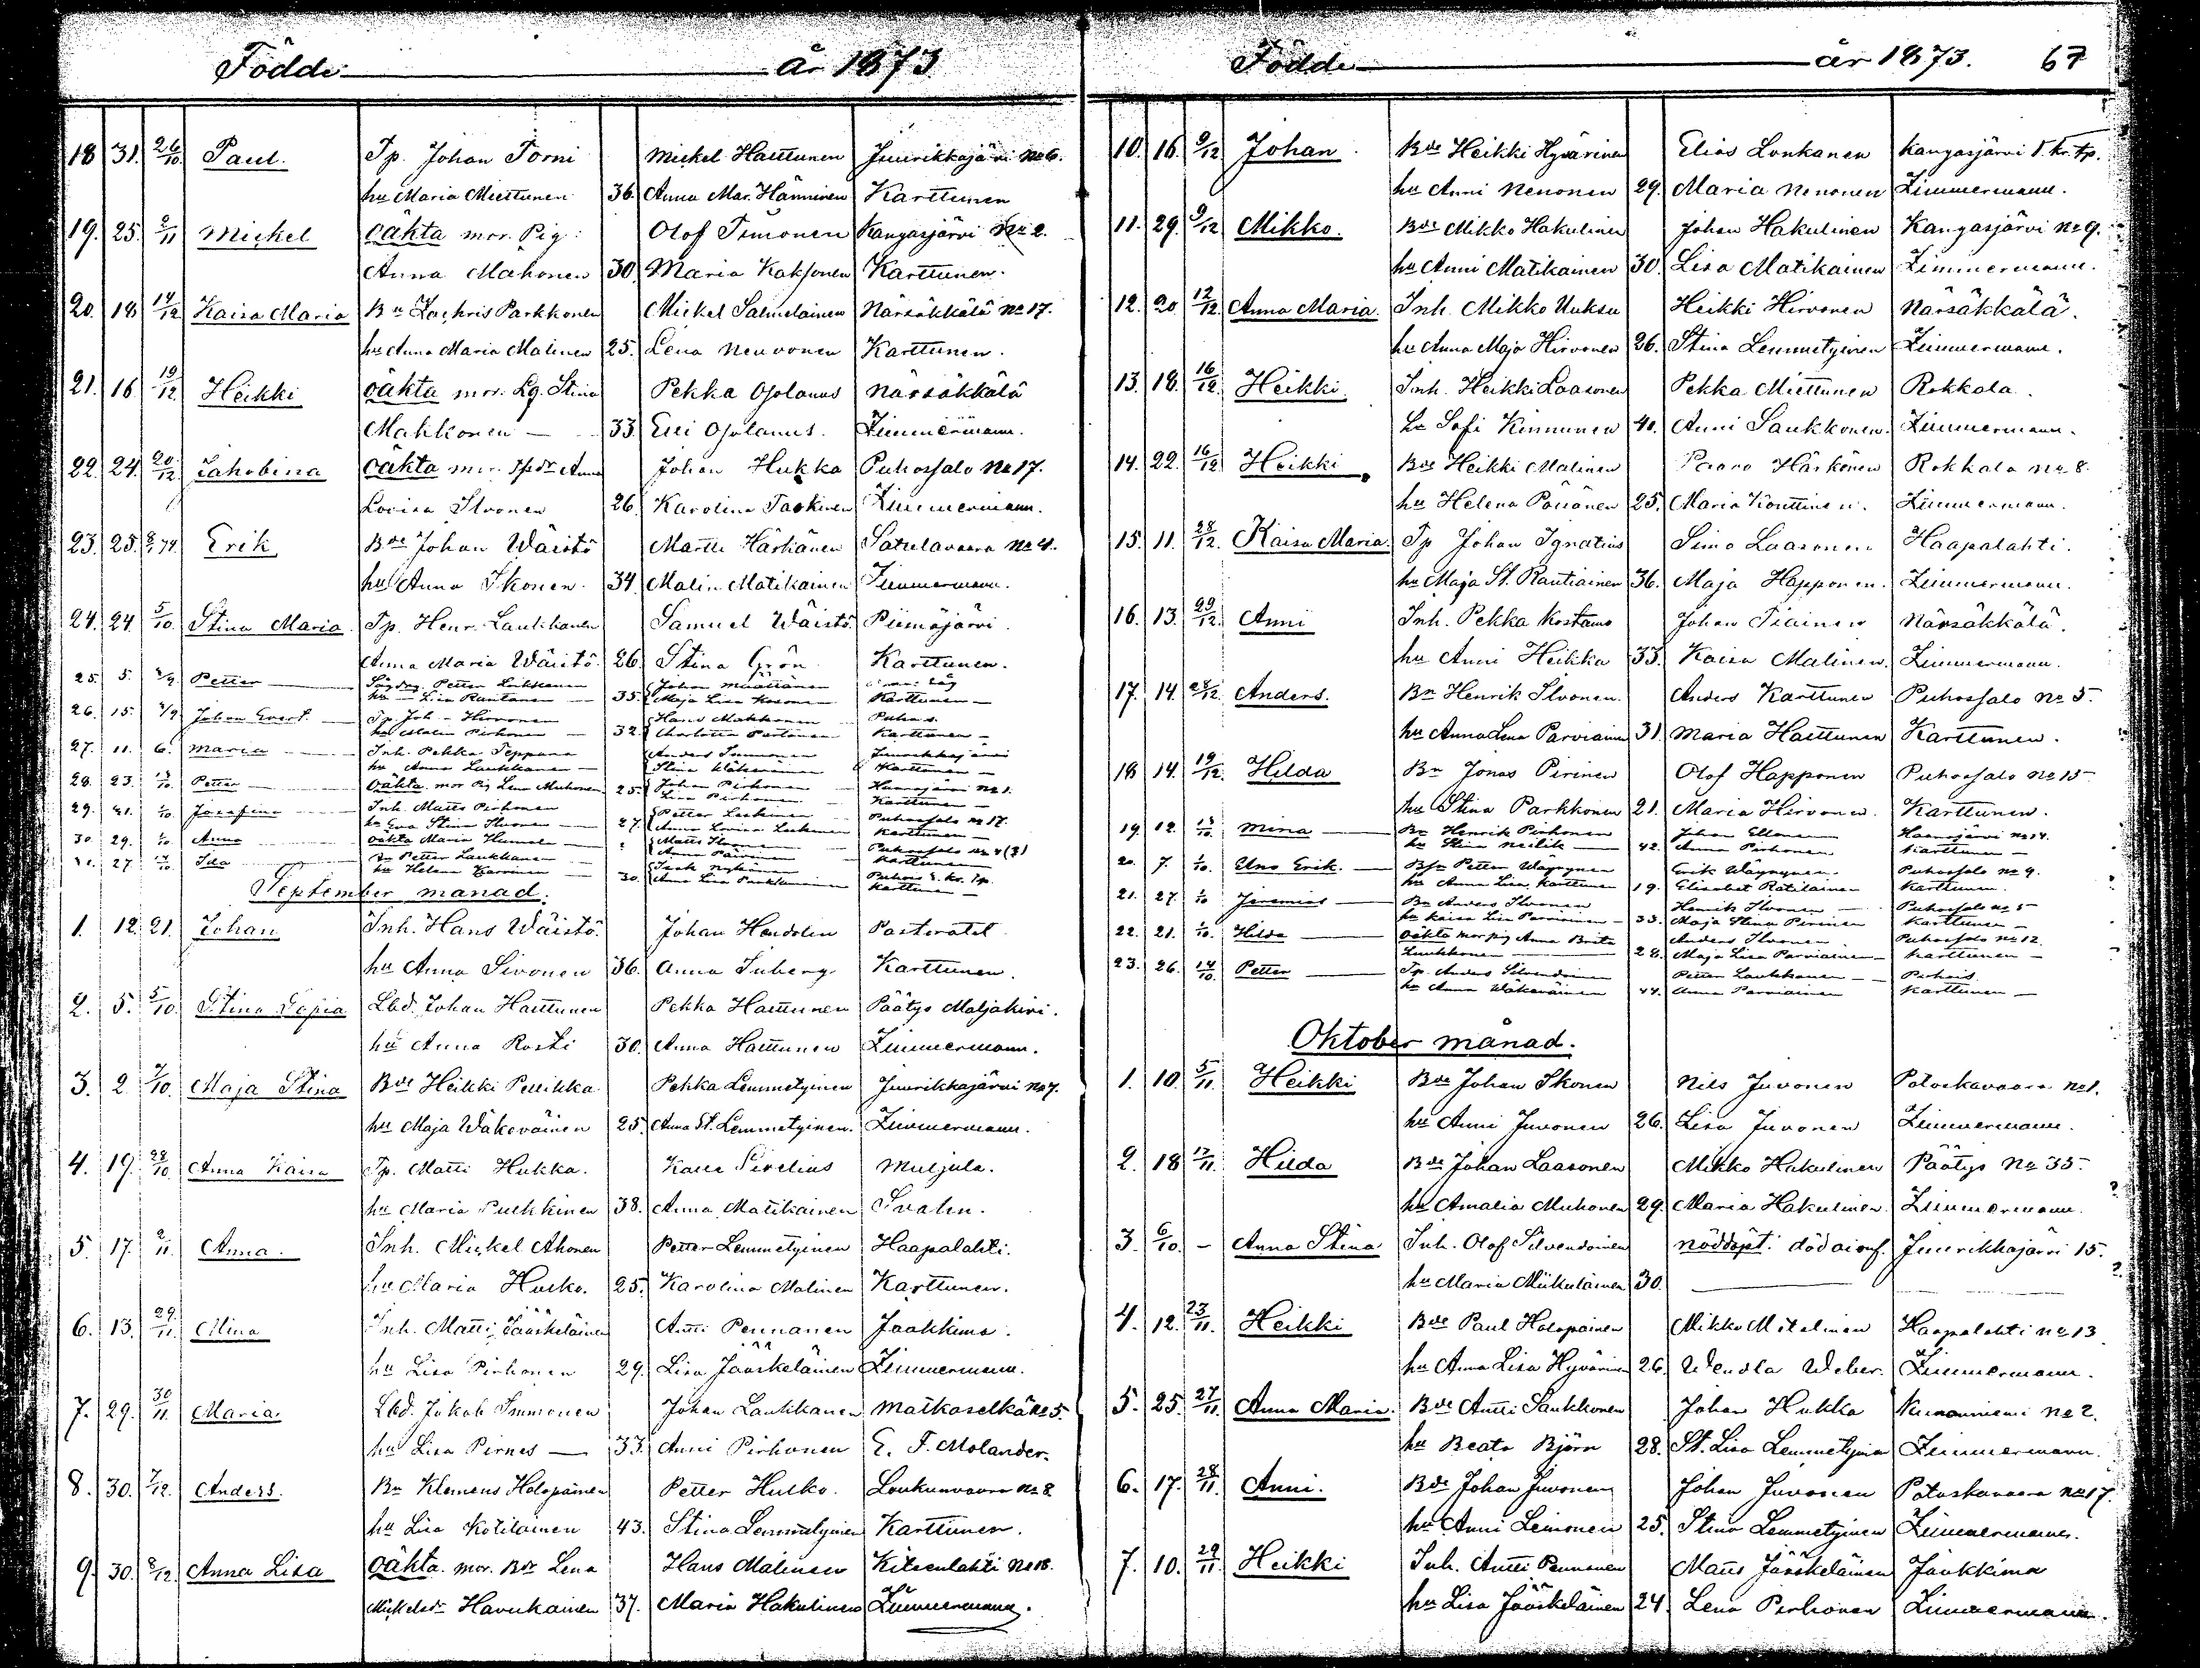 Födde år 1873
18 31. 26/10. Paul. Tp. Johan Torni Mickel Hasttunen Juurikkajärvi No 6.
hu Maria Miettunen 36. Anna Mar. Hänninen Karttunen
19. 25. 2/11 Mickel oäkta mor. Pig. Olof Timonen Kangasjärvi No 2.
Anna Mähönen 30. Maria Kaksonen Karttunen.
20. 18 14/12 Kaisa Maria Bn Zachris Parkkonen Mickel Salmelainen Närsäkkälä No 17.
hu Anna Maria Malinen 25. Lena Neuvonen Karttunen.
21. 16 19/12 Heikki oäkta mor. Lg. Stina Pekka Ojolanus Närsäkkälä
Makkonen — 33. Eui Ojolanus. Zimmermann.
22. 24. 20/12 Jakobina oäkta mor. Tpdr Anna Johan Hukka Puhossalo No 17.
Lovisa Ilvonen 26. Karolina Taskinen Zimmermann.
23. 25. 8/1 74. Erik Bde Johan Wäistö Martti Härkänen Satulavaara No 4.
hu Anna Ikonen. 34. Malin Matikainen Zimmermann.
24. 24. 5/10. Stina Maria Tp. Henr. Laukkanen Samuel Wäistö. Piimäjärvi.
Anna Maria Wäistö. 26. Stina Grön Karttunen.
25. 5. Petter Petter Johan Määttänen
hu Lisa Rautanen 35. Maja Lisa Karttunen —
26. 15. Johan Evert. Tp. Joh. Hirvonen Hans Makkonen Puhos.
hu Malin Pirhonen 32. Charlotta Partanen Karttunen —
27. 11. 6. Maria Inh. Pekka Teppana Anders Immonen Juurikkajärvi
hu Anna Laukkanen Stina Wäkeväinen Karttunen —
28. 23. Petter oäkta mor Pig Lena Muhonen 25. Johan Pirhonen No 1.
Lisa Pirhonen Karttunen —
29. 21. Josefina Inh. Matts Pirhonen Petter Leskinen Puhossalo No 17.
hu Eva Stina Ilvonen 27. Anna Lovisa Leskinen Karttunen —
30. 29. Anna oäkta Maria Matts Puhossalo No 4 (8)
Anna Karttunen
31. 27. Ida Bn Petter Laukkanen Isak Puhos 5. kr. Tp.
hu Helena 30. Anna Lisa Karttunen —
September månad.
1. 12. 21. Johan Inh. Hans Wäistö. Johan Handolin Pastoratet
hu Anna Sivonen 36. Anna Inberg. Karttunen.
2. 5. 5/10. Stina Sofia Lbd. Johan Hasttunen Pekka Hasttunen Päätys Maljakivi.
hu Anna Rosti 30. Anna Hasttunen Zimmermann.
3. 2. 7/10. Maja Stina Bde Heikki Pellikka Pekka Lemmetyinen Juurikkajärvi No 7.
hu Maja Wäkeväinen 25. Anna St. Lemmetyinen. Zimmermann.
4. 19. 28/10. Anna Kaisa Tp. Matti Hukka. Kalle Sirelius Muljula.
hu Maria Pulkkinen 38. Anna Matikainen Svahn.
5. 17. 2/11. Anna. Inh. Mickel Ahonen Petter Lemmetyinen Haapalahti.
hu Maria Husko. 25. Karolina Malinen Karttunen.
6. 13. 29/11. Mina Inh. Matti Jääskeläinen Antti Pennanen Jaakkima.
hu Lisa Pirhonen 29. Lisa Jääskeläinen Zimmermann.
7. 29. 30/11. Maria. Lbd. Jakob Immonen Johan Laukkanen Matkaselkä No 5.
hu Lisa Pirnes — 33. Anni Pirhonen E. F. Molander.
8. 30. 7/12. Anders. Bn Klemens Holopainen Petter Hulko. Loukunvaara No 2
hu Lisa Kotilainen 43. Stina Lemmetyinen Karttunen.
9. 30. 8/12. Anna Lisa oäkta. mor. Bdr Lena Hans Malinen Kitsenlahti No 18.
Mickelsdr Havukainen 37. Maria Hakulinen Zimmermann.
Födde år 1873. 67
10. 16. 9/12 Johan Bde Heikki Hyvärinen Elias Lonkanen Kangasjärvi 5. kr. tp.
hu Anni Nenonen 29. Maria Nenonen Zimmermann.
11. 29. 9/12 Mikko. Bde Mikko Hakulinen Johan Hakulinen Kangasjärvi No 9.
hu Anni Matikainen 30. Lisa Matikainen Zimmermann.
12. 20. 12/12 Anna Maria. Inh. Mikko Uuksu Heikki Hirvonen Närsäkkälä.
hu Anna Maja Hirvonen 26. Stina Lemmetyinen Zimmermann.
13. 18. 16/12 Heikki. Inh. Heikki Laasonen Pekka Miettunen Rokkala.
hu Sofi Kinnunen 40. Anni Saukkonen. Zimmermann.
14. 22. 16/12 Heikki Bde Heikki Malinen Paavo Härkönen Rokkala No 8.
hu Helena Pöllänen 25. Maria Konttinen. Zimmermann.
15. 11. 28/12. Kaisa Maria. Tp Johan Ignatius Simo Laasonen Haapalahti.
hu Maja St. Rautiainen 36. Maja Happonen. Zimmermann.
16. 13. 29/12. Anni Inh. Pekka Kostamo Johan Tiainen Närsäkkälä.
hu Anni Heikka 33. Kaisa Malinen. Zimmermann.
17. 14. 28/12 Anders. Bn Henrik Ilvonen. Anders Karttunen Puhossalo No 5.
hu Anna Lena Parviainen 31 Maria Hasttunen Karttunen.
18 14. 19/12. Hilda Bn Jonas Pirinen Olof Happonen Puhossalo No 15
hu Stina Parkkonen 21. Maria Hirvonen. Karttunen.
19. 12. Mina Bn Henrik Pirhonen Johan Ellonen No 14.
hu Stina 42. Anna Pirhonen Karttunen —
20. 7. Uno Erik. Petter Wäyrynen Erik Wäyrynen. Puhossalo No 9.
hu Anna Lisa Karttunen 19. Elisabet Ratilainen Karttunen.
21. 27. Jeremias Bn Anders Ilvonen Henrik Ilvonen Puhossalo No 5
hu Kaisa Lisa Parviainen 33. Maja Stina Pirinen Karttunen —
22. 21. Hilda oäkta mor pig Anna Brita Anders Ilvonen Puhossalo No 12.
Laukkonen 28. Maja Lisa Parviainen Karttunen —
23. 26. 14/10. Petter Tp. Anders Silvendoinen Petter Laukkanen
hu Anna Wäkeväinen 44. Anna Parviainen Karttunen —
Oktober månad.
1. 10. 5/11. Heikki Bde Johan Ikonen Nils Juvonen Potoskavaara No 1.
hu Anni Juvonen 26. Lisa Juvonen Zimmermann.
2. 18 17/11. Hilda Bde Johan Laasonen Mikko Hakulinen Päätys No 35.
hu Amalia Muhonen 29. Maria Hakulinen. Zimmermann.
3. 6/10. — Anna Stina Inh. Olof Silvendoinen nöddöpt. Juurikkajärvi 15.
hu Maria Miikulainen 30.
4. 12. 23/11. Heikki Bde Paul Holopainen Mikko Mitelinen Haapalahti No 13
hu Anna Lisa Hyvärinen 26 Wendla Weber. Zimmermann.
5. 25. 27/11. Anna Maria. Bde Antti Saukkonen Johan Hukka Kunonniemi No 2.
hu Beata Björn 28. St. Lisa Lemmetyinen Zimmermann.
6. 17. 28/11. Anni. Bde Johan Juvonen Johan Juvonen Potoskavaara No 17.
hu Anni Leinonen 25. Stina Lemmetyinen Zimmermann.
7. 10. 29/11. Heikki Inh. Antti Pennanen Matts Jääskeläinen Jaakkima
hu Lisa Jääskeläinen 24. Lena Pirhonen Zimmermann.